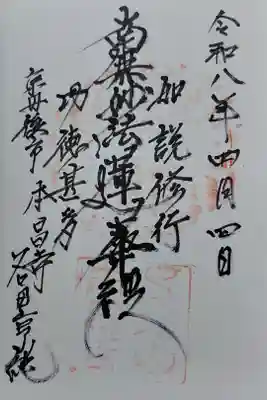 令和八年四月四日
如説修行
南無妙法蓮華経
功徳甚多
本昌寺